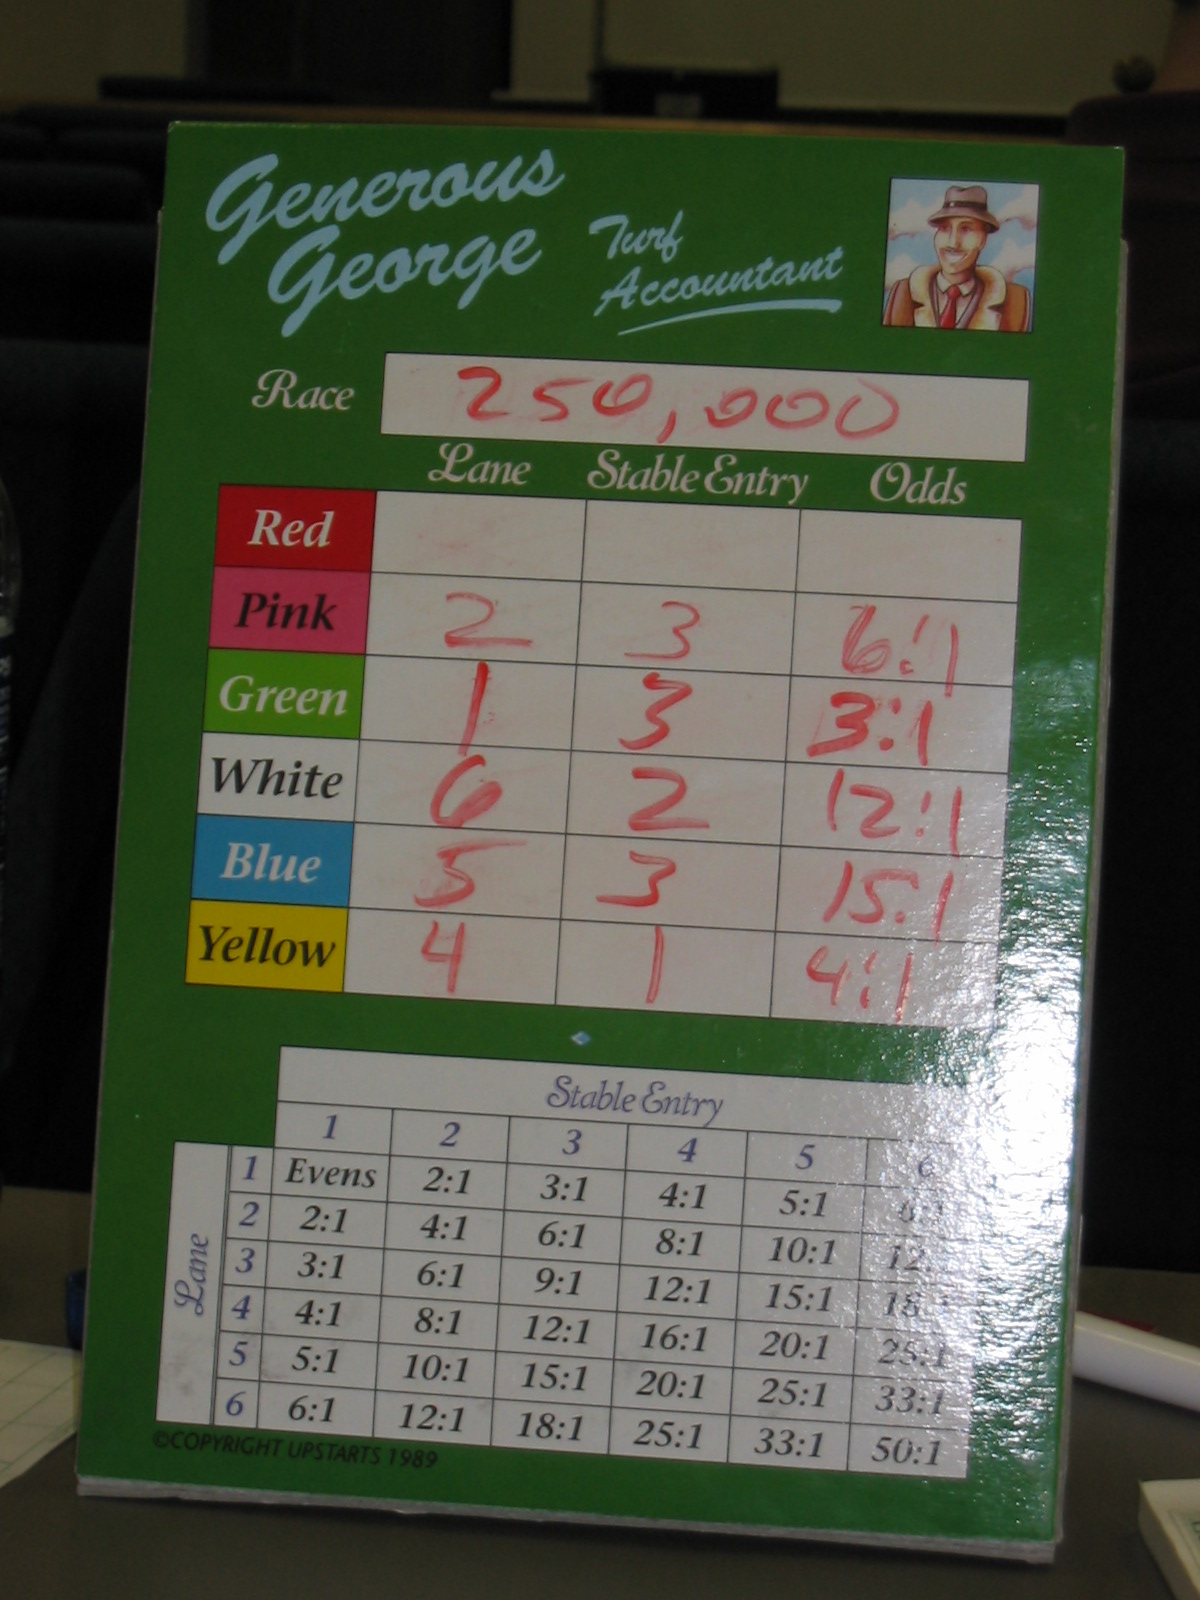 Generous
George
Turf
Accountant
Race 250,000
Lane Stable Entry Odds
Red
Pink 2 3 6:1
Green 1 3 3:1
White 6 2 12:1
Blue 5 3 15:1
Yellow 4 1 4:1
Stable Entry
1 2 3 4 5 6
Lane
1 Evens 2:1 3:1 4:1 5:1 6:1
2 2:1 4:1 6:1 8:1 10:1 12:1
3 3:1 6:1 9:1 12:1 15:1 18:1
4 4:1 8:1 12:1 16:1 20:1 25:1
5 5:1 10:1 15:1 20:1 25:1 33:1
6 6:1 12:1 18:1 25:1 33:1 50:1
©COPYRIGHT UPSTARTS 1989